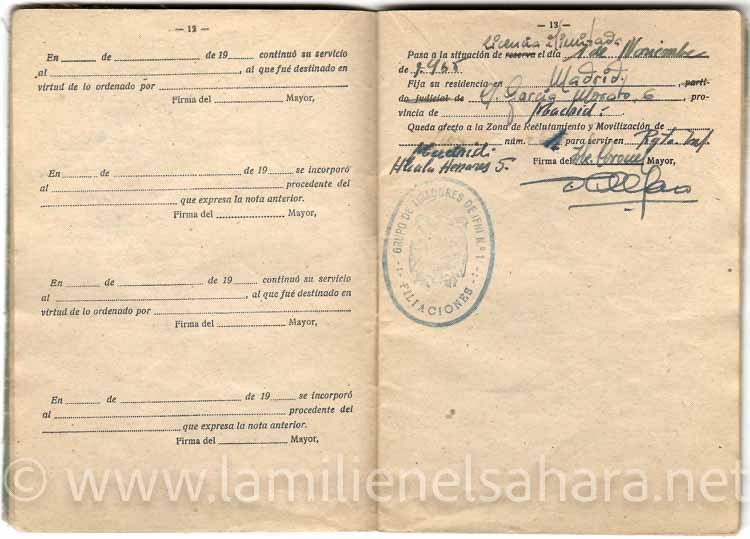 — 12 —
En de de 19 continuó su servicio
al , al que fué destinado en
virtud de lo ordenado por
Firma del Mayor,
En de de 19 se incorporó
al procedente del
que expresa la nota anterior.
Firma del Mayor,
En de de 19 continuó su servicio
al , al que fué destinado en
virtud de lo ordenado por
Firma del Mayor,
En de de 19 se incorporó
al procedente del
que expresa la nota anterior.
Firma del Mayor,
— 13 —
licencia ilimitada
Pasa a la situación de reserva el día 1 de Noviembre
de 1.965
Fija su residencia en Madrid, parti-
do judicial de García Morato, 6, pro-
vincia de Madrid.
Queda afecto a la Zona de Reclutamiento y Movilización de
Madrid núm. 1 para servir en Rgto. Inf.
Alcalá Henares 5. Firma del Tte. Coronel Mayor,
GRUPO DE TIRADORES DE IFNI N.º 1
FILIACIONES
© www.lamilienelsahara.net